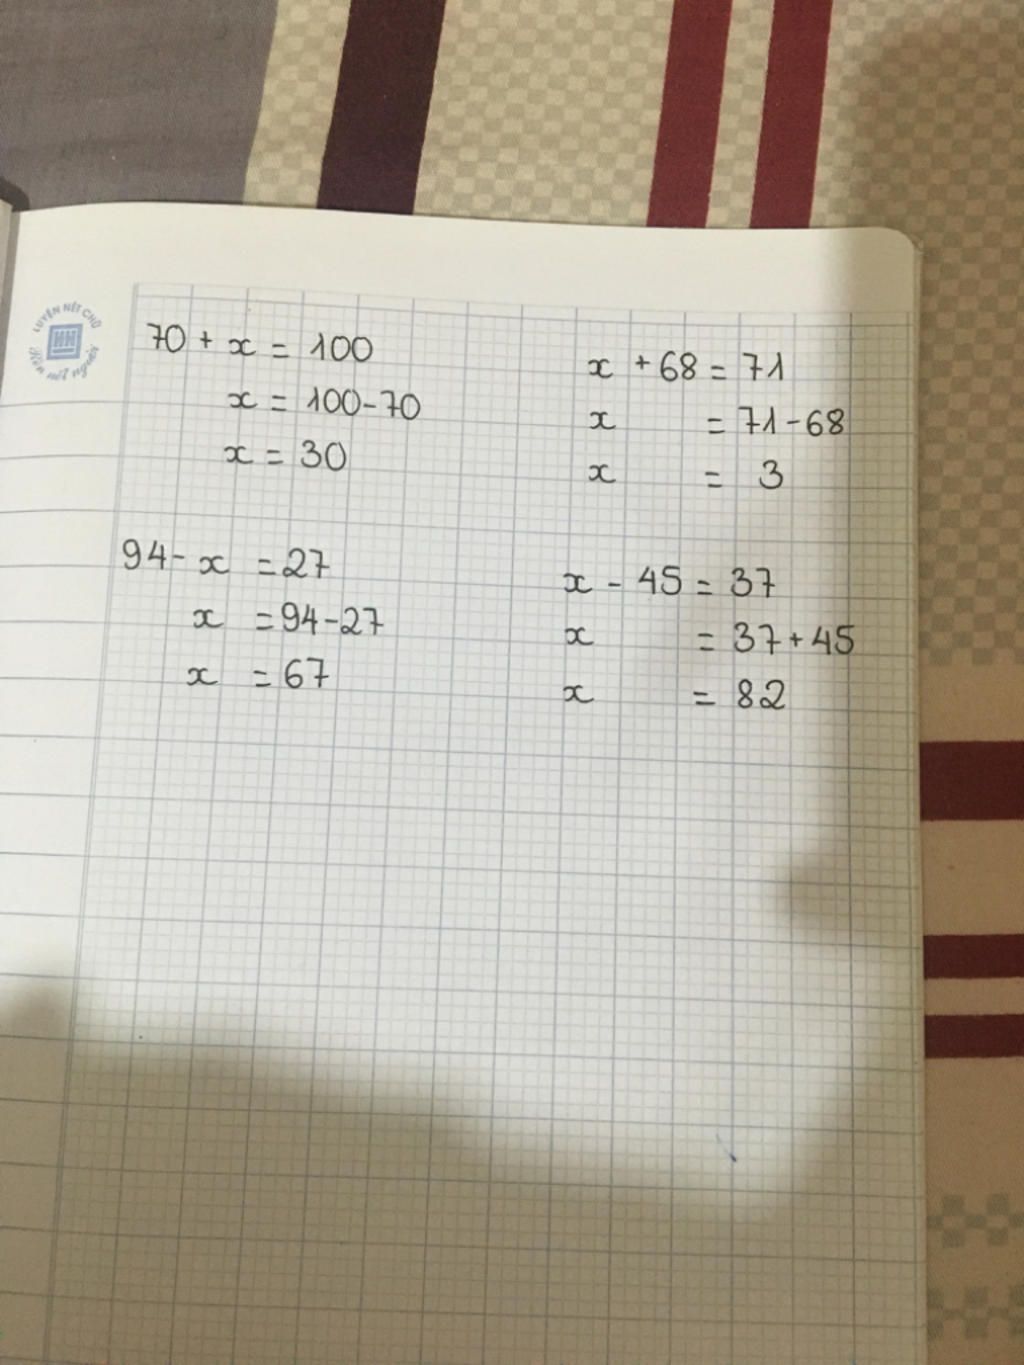 LUYỆN NÉT CHỮ
HN
Rèn nết người
70 + x = 100
x = 100-70
x = 30
x + 68 = 71
x = 71-68
x = 3
94- x = 27
x = 94-27
x = 67
x - 45 = 37
x = 37+45
x = 82